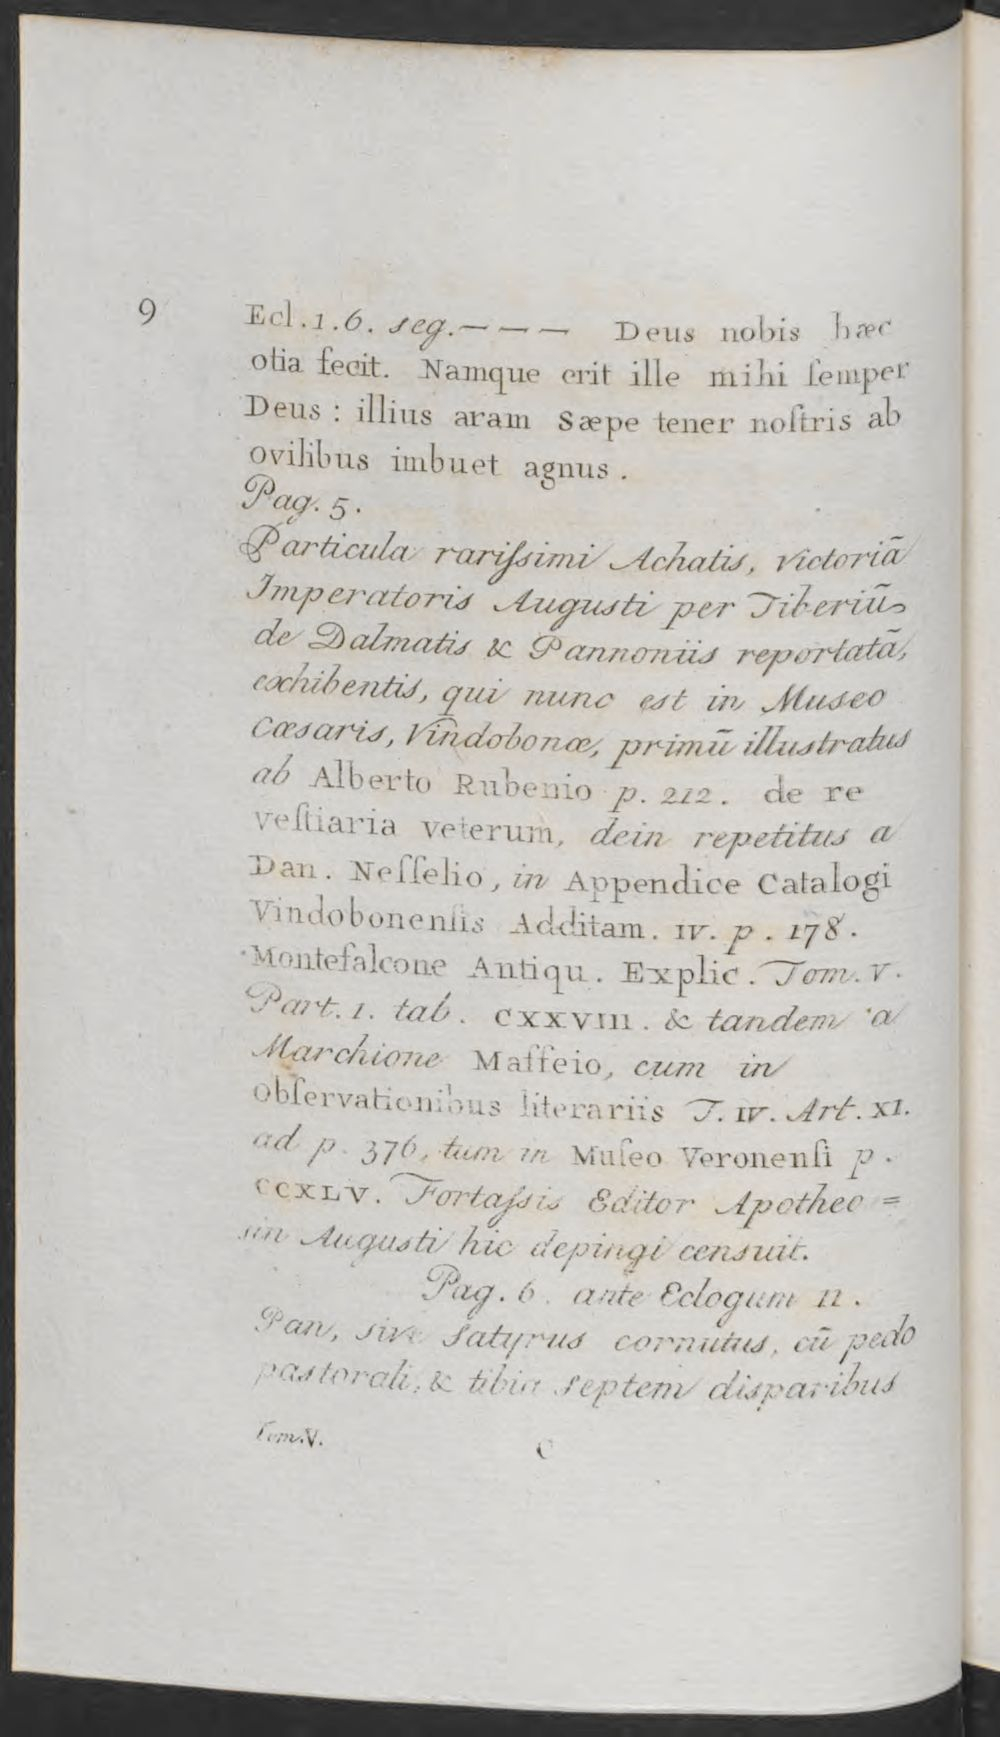 9
Ecl.1.6. seg.— — — Deus nobis hæc
otia fecit. Namque erit ille mihi ſemper
Deus : illius aram Sæpe tener noſtris ab
ovilibus imbuet agnus .
Pag. 5.
Particula rariſsimi Achatis, victoriā
Imperatoris Augusti per Tiberiū
de Dalmatis & Pannoniis reportatā,
exhibentis, qui nunc est in Museo
Cæsaris, Vindobonæ, primū illustratus
ab Alberto Rubenio p. 212. de re
veſtiaria veterum, dein repetitus a
Dan. Neſſelio, in Appendice Catalogi
Vindobonenſis Additam. IV. p. 178.
Montefalcone Antiqu. Explic. Tom. V.
Part. 1. tab. CXXVIII. & tandem a
Marchione Maffeio, cum in
obſervationibus literariis T. IV. Art. XI.
ad p. 376, tum in Muſeo Veronenſi p.
CCXLV. Fortaſsis Editor Apotheo=
sin Augusti hic depingi censuit.
Pag. 6. ante Eclogum II.
Pan, sive Satyrus cornutus, cū pedo
pastorali, & tibia septem disparibus
Tom.V.
C